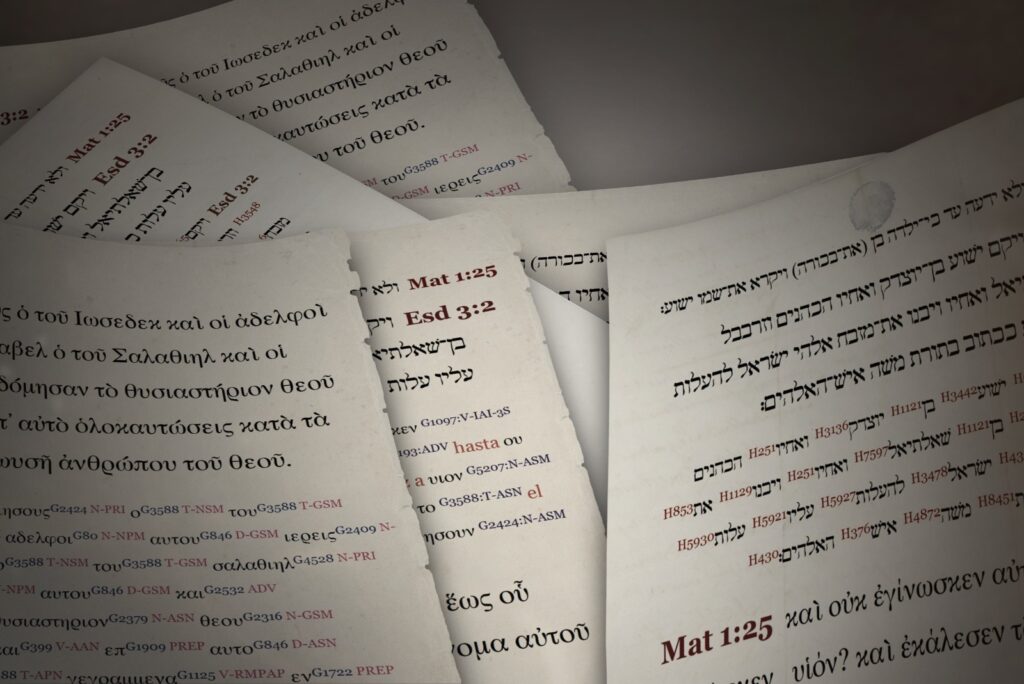 ὁ τοῦ Ιωσεδεκ καὶ οἱ
ὁ τοῦ Σαλαθιηλ καὶ οἱ
τὸ θυσιαστήριον θεοῦ
κατὰ τὰ
τοῦ θεοῦ.
τουG3588 T-GSM
ιερειςG2409 N-
N-PRI
3:2
Mat 1:25 ולא ידעה עד
Esd 3:2 ויקם
בן־שאלתיאל
עליו עלות
Esd 3:2
H3548
ὁ τοῦ Ιωσεδεκ καὶ οἱ ἀδελφοὶ
ὁ τοῦ Σαλαθιηλ καὶ οἱ
τὸ θυσιαστήριον θεοῦ
αὐτὸ ὁλοκαυτώσεις κατὰ τὰ
ἀνθρώπου τοῦ θεοῦ.
G2424 N-PRI οG3588 T-NSM τουG3588 T-GSM
αδελφοιG80 N-NPM αυτουG846 D-GSM ιερειςG2409 N-
G3588 T-NSM τουG3588 T-GSM σαλαθιηλG4528 N-PRI
αυτουG846 D-GSM καιG2532 ADV
G2379 N-ASN θεουG2316 N-GSM
G399 V-AAN επG1909 PREP αυτοG846 D-ASN
T-APN γεγραμμεναG1125 V-RMPAP ενG1722 PREP
Mat 1:25 ולא
Esd 3:2
בן־שאלתיא
עליו עלות
G1097:V-IAI-3S
:ADV hasta ου
a υιον G5207:N-ASM
το G3588:T-ASN el
G2424:N-ASM
ἕως οὗ
αὐτοῦ
(את־בכורה)
ואחיו
ולא ידעה עד כי־ילדה בן (את־בכורה) ויקרא את־שמו ישוע:
ויקם ישוע בן־יוצדק ואחיו הכהנים וזרבבל
ואחיו ויבנו את־מזבח אלהי ישראל להעלות
ככתוב בתורת משה איש־האלהים:
ישועH3442 בןH1121 יוצדקH3136 ואחיוH251 הכהנים
בןH1121 שאלתיאלH7597 ואחיוH251 ויבנוH1129 אתH853
ישראלH3478 להעלותH5927 עליוH5921 עלותH5930
H8451 משהH4872 אישH376 האלהיםH430:
Mat 1:25 καὶ οὐκ ἐγίνωσκεν
υἱόν? καὶ ἐκάλεσεν